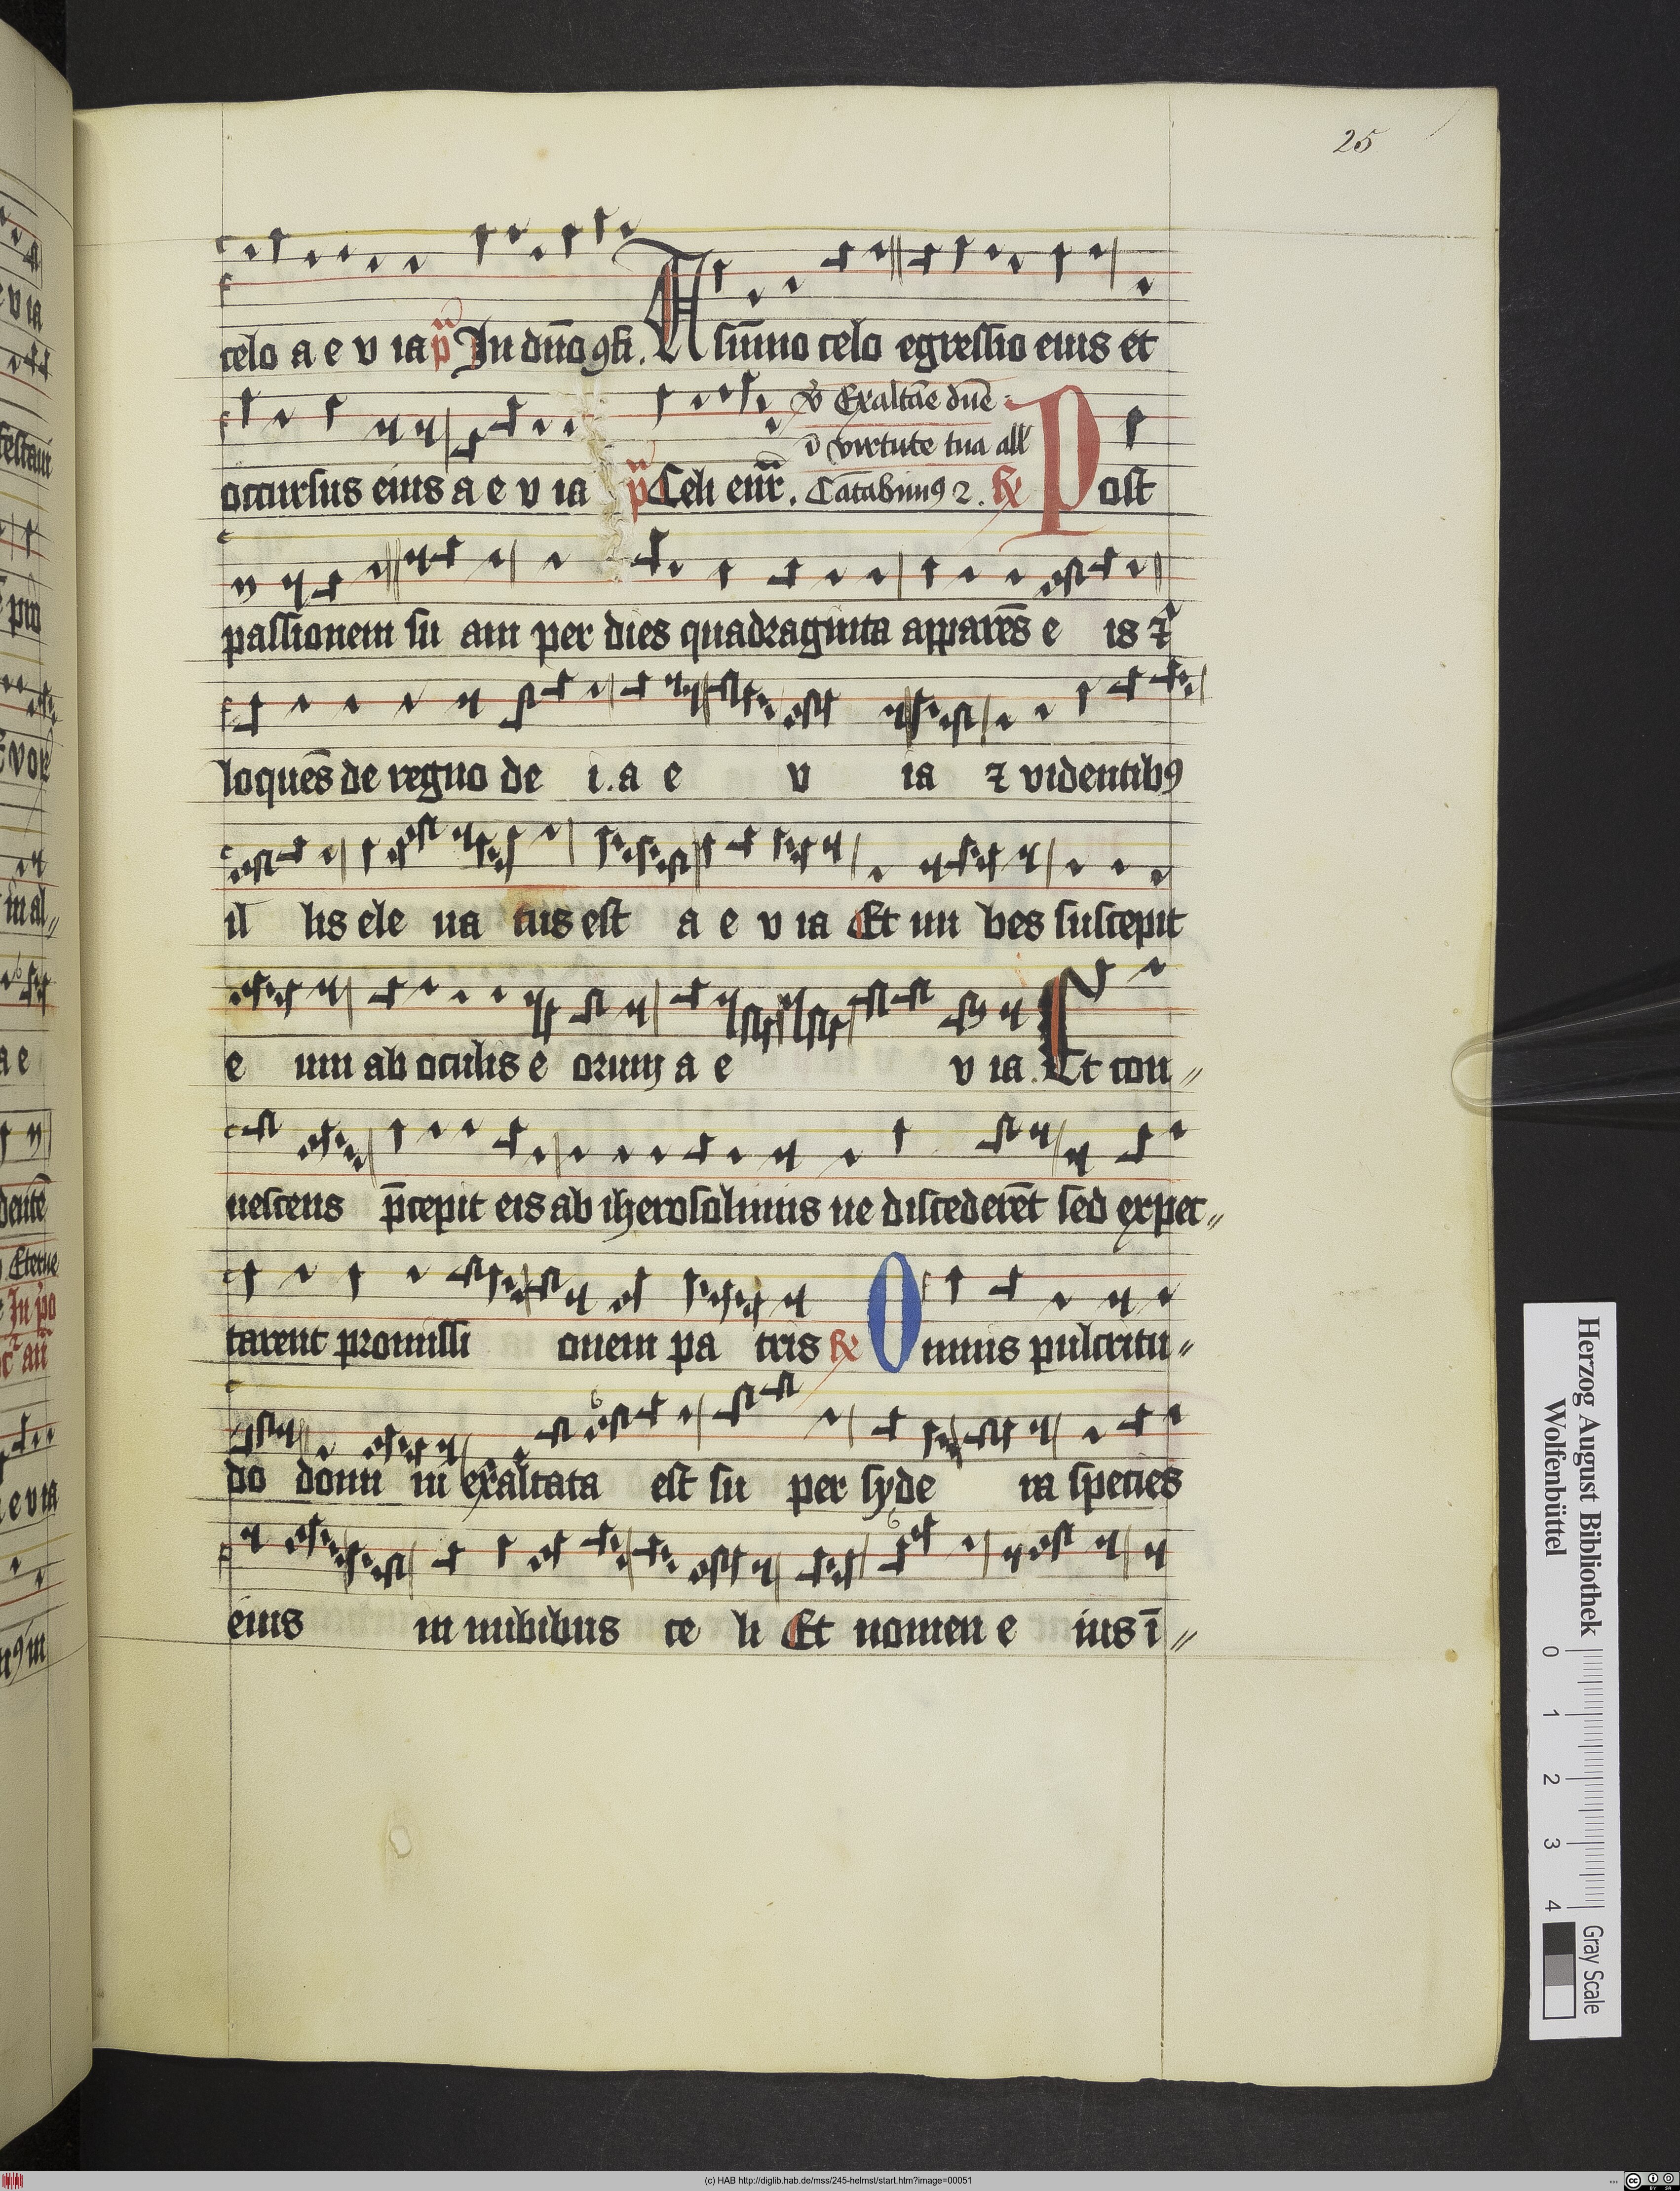 25
celo a e v ia p̄ In dn̄o ꝯfi. A sūmo celo egressio eius et
occursus eius a e v ia p̄ Celi enr̄. ℣ Exaltāe dn̄e
ī virtute tua all
Cātabimꝰ ⁊. ℟ Post
passionem su am per dies quadraginta apparēs e is ⁊
loquēs de regno de i. a e v ia ⁊ videntibꝰ
il lis ele ua tus est a e v ia Et nu bes suscepit
e um ab oculis e orum a e v ia. Et con〃
uescens p̄cepit eis ab iherosolimis ne discederēt sed expec〃
tarent promissi onem pa tris ℟ Omnis pulcritu〃
do domi ni exaltata est su per syde ra species
eius in nubibus ce li Et nomen e ius ī〃
Herzog August Bibliothek
Wolfenbüttel
0 1 2 3 4
Gray Scale
(c) HAB http://diglib.hab.de/mss/245-helmst/start.htm?image=00051